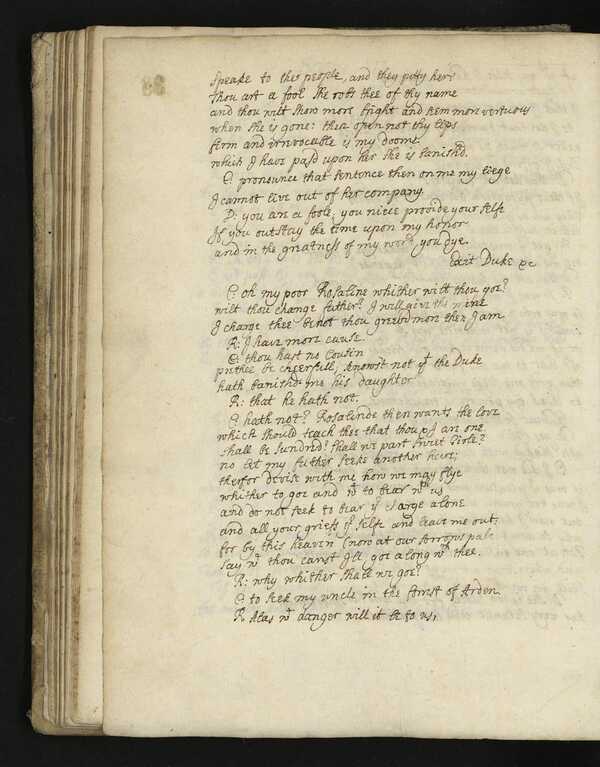 speake to the people, and they pitty her
thou art a fool she robs thee of thy name
and thou wilt show more bright and seem more vertuous
when she is gone: then open not thy lips
firm and irrevocable is my doome
which I have pass'd upon her she is banish'd.
C: pronounce that sentence then on me my liege
I cannot live out of her company.
D: you are a foole: you niece provide your selfe
If you outstay the time upon my honor
and in the greatness of my word you dye.
Exit Duke &c
C: oh my poor Rosaline whither wilt thou goe?
wilt thou change father? I will give the mine
I charge thee be not thou greevd more then I am
R: I have more cause.
C: thou hast no Cousin
prithee be cheerfull, knowst not yt the Duke
hath banishd me his daughter
R: that he hath not.
C hath not? Rosalinde then wants the love
which should teach thee that thou & I am one.
shall be sundrid? shall we part sweet Girle?
no let my father seeke another heire;
therfor devise with me how we may flye
whither to goe and wt to bear wth us
and do not seek to bear yr charge alone
and all your griefs yr selfe and leave me out.
for by this heaven (now at our sorrows pale
say wt thou canst Ile goe along wth thee.
R: why whither shall we goe?
C to seek my uncle in the forrest of Arden.
R Alas wt danger will it be to us,